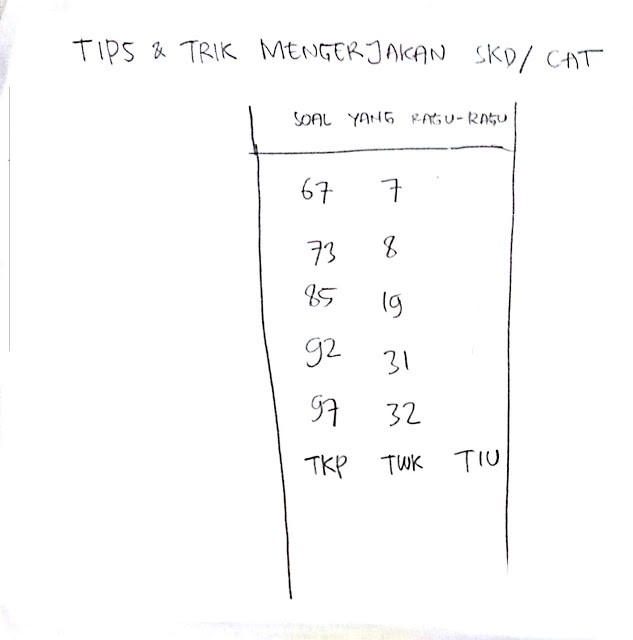 TIPS & TRIK MENGERJAKAN SKD/ CAT
SOAL YANG RAGU-RAGU
67 7
73 8
85 19
92 31
97 32
TKP TWK TIU